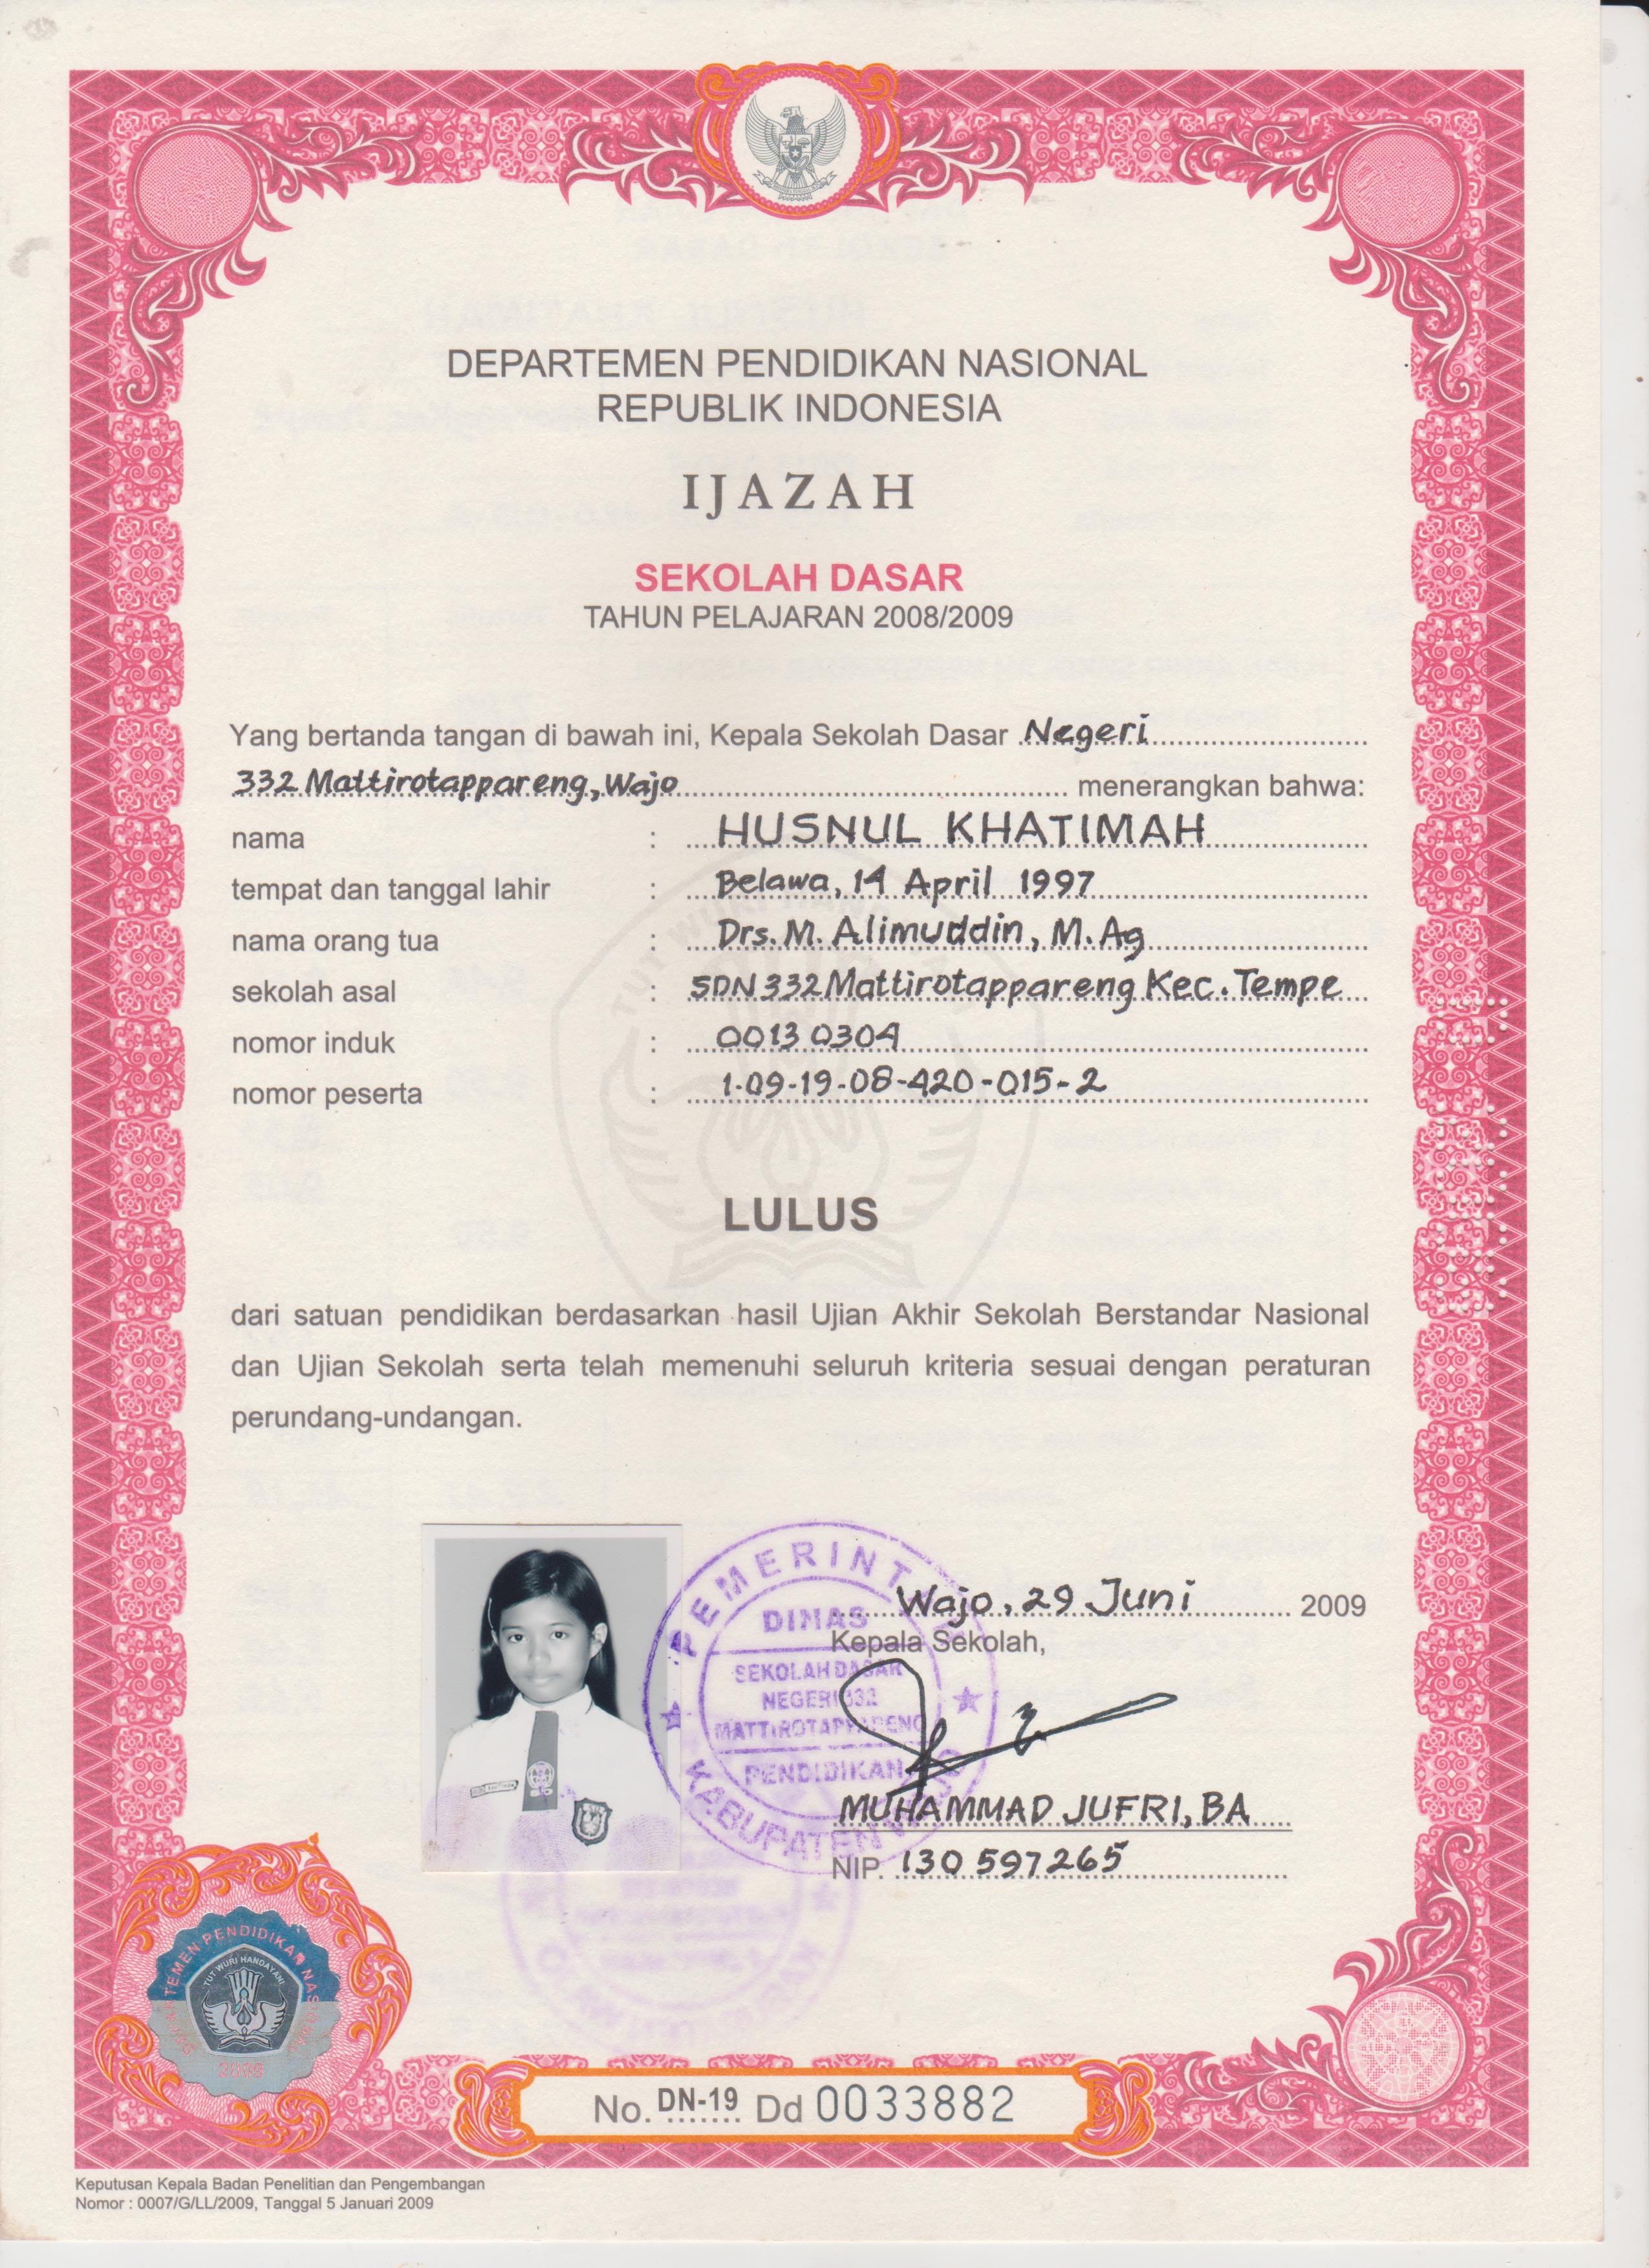 DEPARTEMEN PENDIDIKAN NASIONAL
REPUBLIK INDONESIA
IJAZAH
SEKOLAH DASAR
TAHUN PELAJARAN 2008/2009
Yang bertanda tangan di bawah ini, Kepala Sekolah Dasar Negeri
332 Mattirotappareng, Wajo menerangkan bahwa:
nama : HUSNUL KHATIMAH
tempat dan tanggal lahir : Belawa, 14 April 1997
nama orang tua : Drs. M. Alimuddin, M. Ag
sekolah asal : SDN 332 Mattirotappareng Kec. Tempe
nomor induk : 0013 0304
nomor peserta : 1-09-19-08-420-015-2
TUT WURI
LULUS
dari satuan pendidikan berdasarkan hasil Ujian Akhir Sekolah Berstandar Nasional
dan Ujian Sekolah serta telah memenuhi seluruh kriteria sesuai dengan peraturan
perundang-undangan.
PEMERINTAH
DINAS
SEKOLAH DASAR
NEGERI 332
MATTIROTAPPARENG
PENDIDIKAN
KABUPATEN WAJO
Wajo, 29 Juni 2009
Kepala Sekolah,
MUHAMMAD JUFRI, BA
NIP. 130 597265
TEMEN PENDIDIKAN NAS
TUT WURI HANDAYANI
2009
No. DN-19 Dd 0033882
Keputusan Kepala Badan Penelitian dan Pengembangan
Nomor : 0007/G/LL/2009, Tanggal 5 Januari 2009